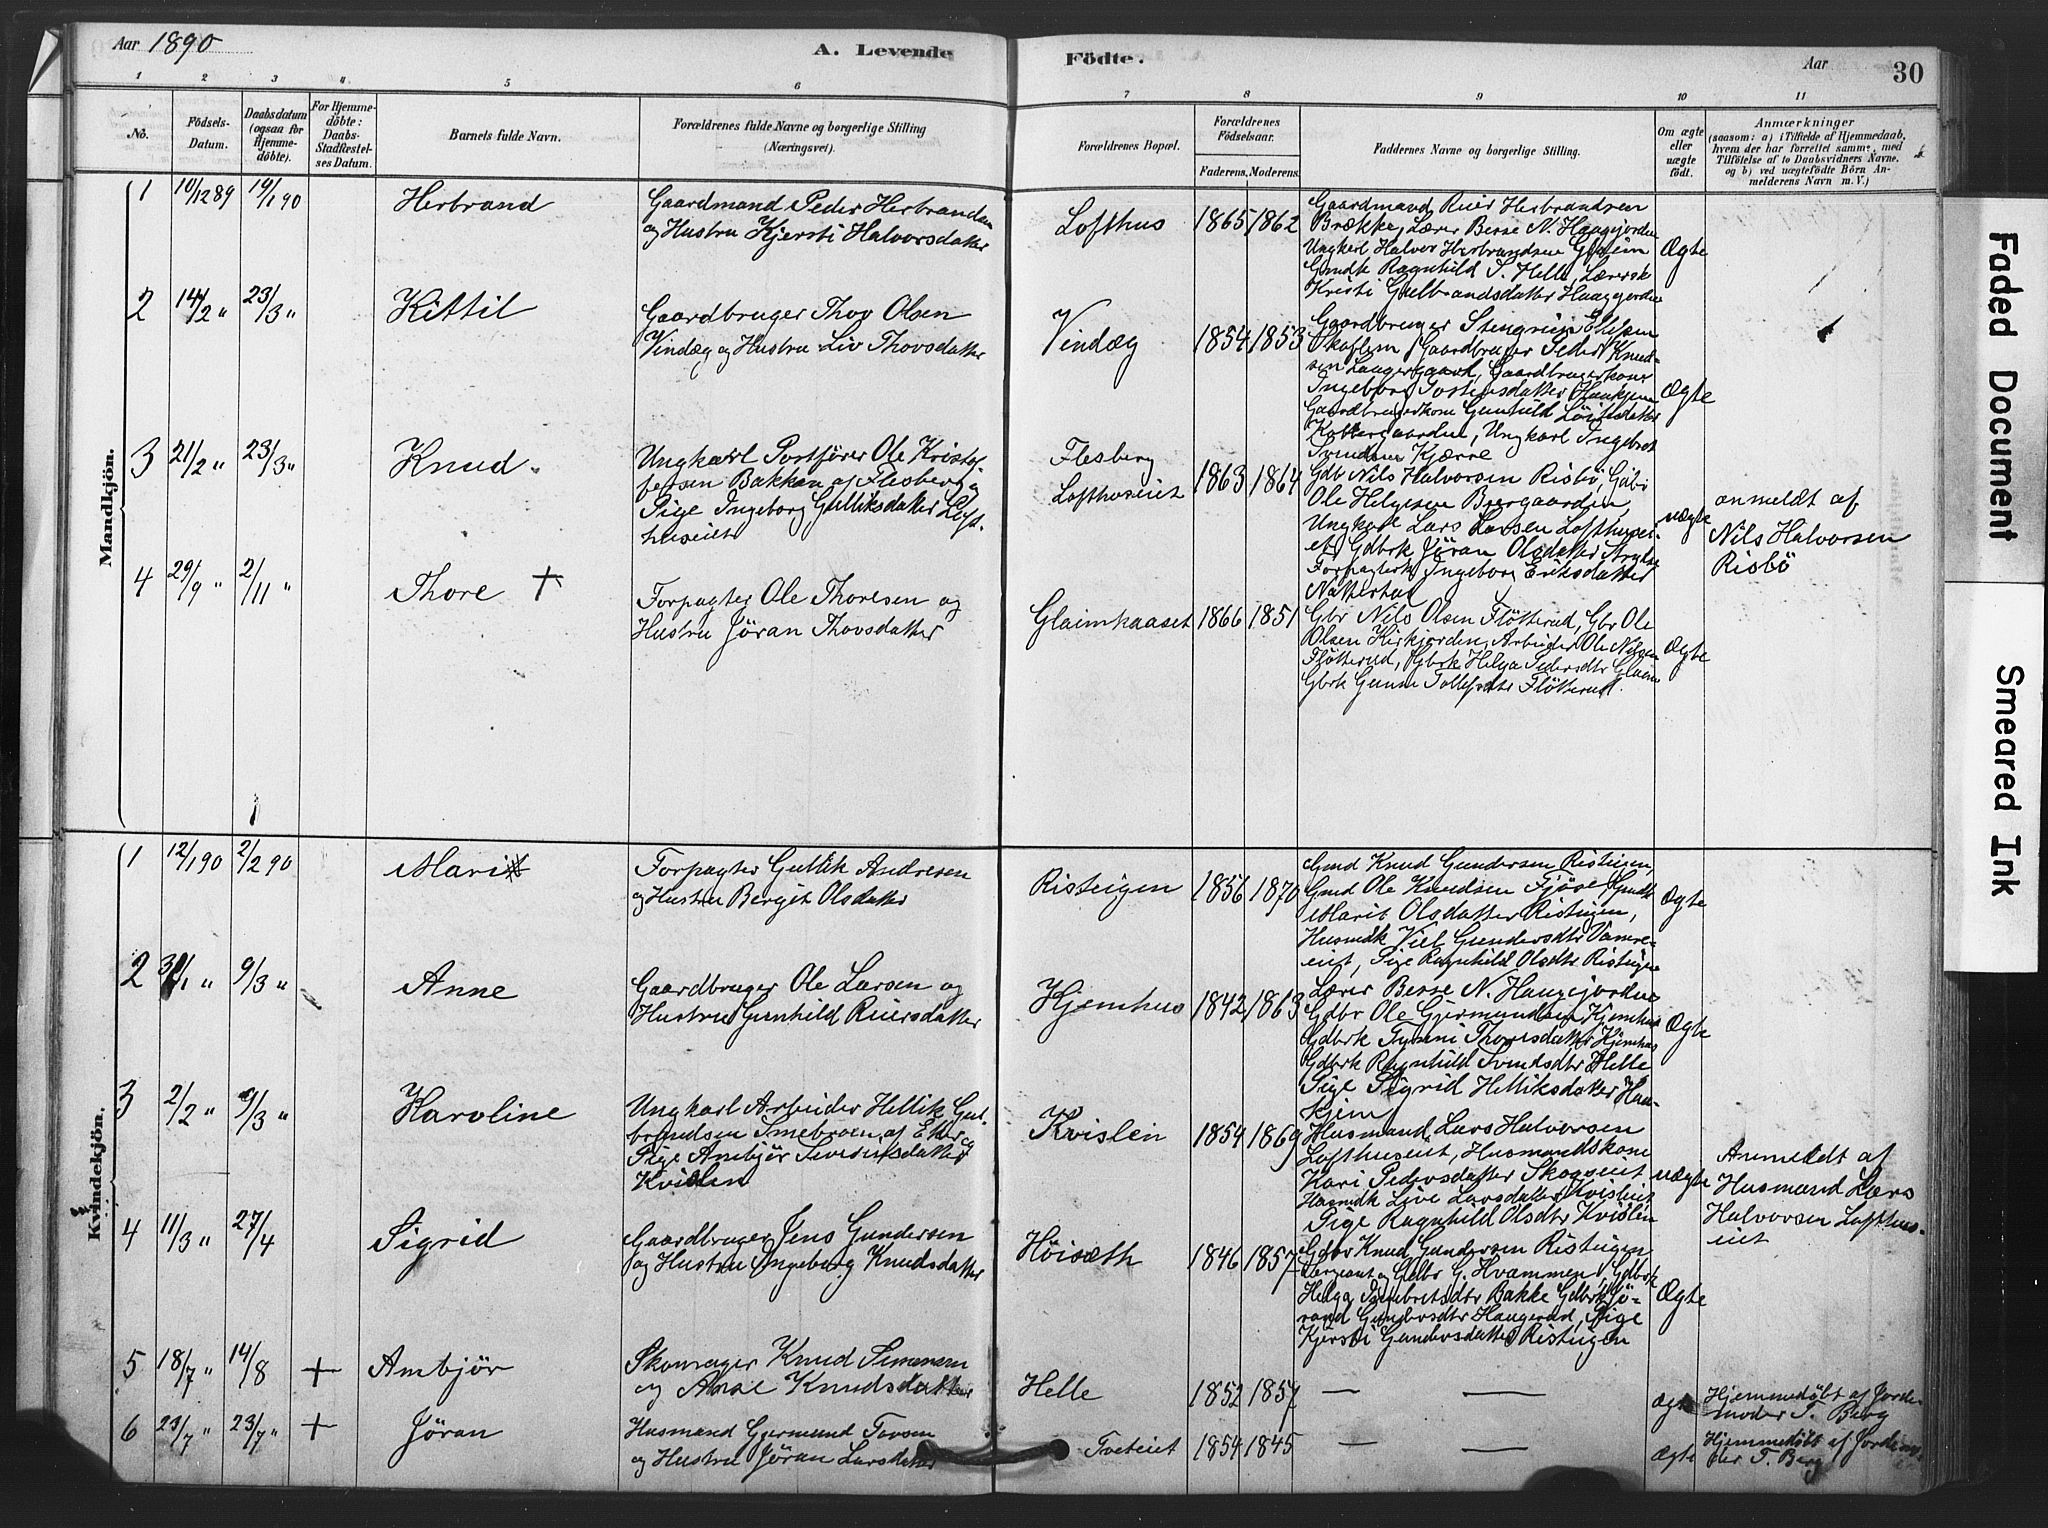 Aar 1890
A. Levende
Födte.
Aar
30
1 2 3 4 5 6 7 8 9 10 11
No.
Födsels-
Datum.
Daabsdatum
(ogsaa for
Hjemme-
döbte).
For Hjemme-
döbte:
Daabs-
Stadfæstel-
ses Datum.
Barnets fulde Navn.
Forældrenes fulde Navne og borgerlige Stilling
(Næringsvei).
Forældrenes Bopæl.
Forældrenes
Födselsaar.
Faderens. Moderens.
Faddernes Navne og borgerlige Stilling.
Om ægte
eller
uægte
födt.
Anmærkninger
(saasom: a) i Tilfælde af Hjemmedaab,
hvem der har forrettet samme, med
Tilföielse af to Daabsvidners Navne.
og b) ved uægtefödte Börn An-
melderens Navn m. V.)
Mandkjön.
1 10/12 89 19/1 90
Herbrand
Gaardmand Peder Herbrandsen
og Hustru Kjersti Halvorsdatter
Lofthus
1865 1862
Gaardmand Reier Herbrandsen
Brække, Lærer Besse N. Haugjorden
Ungkarl Halvor Herbrandsen Glaim
Gmdk Ragnhild S. Helle, Lærersk
Kristi Gulbrandsdatter Haugjorden
Ægte
2 14/2 " 23/3 "
Kittil
Gaardbruger Thov Olsen
Vindæg og Hustru Liv Thovsdatter
Vindæg
1854 1853
Gaardbruger Stengrim
Gaardbruger Peder Knud-
sen Gaardbrugerkone
Ingeborg
Gaardbrugerkone Gunhild
Ungkarl Ingebret
Svendsen Kjærre
Ægte
3 21/2 " 23/3 "
Knud
Ungkarl Postförer Ole Kristof-
fersen Bakken af Flesberg og
Pige Ingeborg Gulliksdatter Loft-
huseiet
Flesberg
Lofthuseiet
1863 1864
Gdb Nils Halvorsen Risbö, Gdbr
Ole Helgesen Bjergaarden,
Ungkarl Lars Larsen Lofthusei-
et, Gdbrk Jöran Olsdatter
Forpagterk Ingeborg Eriksdatter
uægte
anmeldt af
Nils Halvorsen
Risbö
4 29/9 " 2/11 "
Thore +
Forpagter Ole Thoresen og
Hustru Jöran Thovsdatter
Glaimhaaset
1866 1851
Gbr Nils Olsen Flötterud, Gbr Ole
Olsen Kirkjorden, Arbeider Ole Nilsen
Flötterud, Gbrk Helga Pedersdtr Glaim
Gbrk Gunne Tollefsdtr Flötterud.
Ægte
Kvindekjön.
1 12/1 90 2/2 90
Mari
Forpagter Gullik Andresen
og Hustru Bergit Olsdatter
Risteigen
1856 1870
Gmd Knud Gundersen Risteigen,
Gmd Ole Knudsen Fjöse Gmdk
Marit Olsdatter Risteigen,
Husmdk Viel Gundersdtr Vamre-
eiet, Pige Ragnhild Olsdtr Risteigen
Ægte
2 /1 " 9/3 "
Anne
Gaardbruger Ole Larsen og
Hustru Gunhild Reiersdatter
Kjemhus
1842 1863
Lærer Besse N. Haugjorden
Gdbr Ole Gjermundsen Kjemhus
Gdbrk Thoresdatter Kjemhus
Gdbrk Ragnhild Svendsdtr Helle
Pige Sigrid Helliksdatter Haa-
kjem
Ægte
3 2/2 " 9/3 "
Karoline
Ungkarl Arbeider Hellik Gul-
brandsen Smebroen af Eker og
Pige Ambjör Severinsdatter
Kvislen
Kvislen
1854 1869
Husmand Lars Halvorsen
Lofthuseiet, Husmandskone
Kari Pedersdatter Skogseiet
Husmdk Live Larsdatter Kvisleiet
Pige Ragnhild Olsdtr Kvislen
uægte
Anmeldt af
Husmand Lars
Halvorsen Lofthus-
eiet
4 11/3 " 27/4
Sigrid
Gaardbruger Jens Gundersen
og Hustru Ingeborg Knudsdatter
Höisæth
1846 1857
Gdbr Knud Gundersen Risteigen
Sergeant og Gdbr G. Hvammen, Gdbrk
Helga Bakke Gdbrk Jö-
rand Gundersdtr Haugerud, Pige
Kjersti Gundersdatter Risteigen
Ægte
5 18/7 " 14/8 +
Ambjör
Skomager Knud Simensen
og Anne Knudsdatter
Helle
1852 1857
— —
Ægte
Hjemmedöbt af Jorde-
moder T. Berg
6 23/7 " 23/7 " +
Jöran
Husmand Gjermund Tovsen
og Hustru Jöran Larsdatter
Tveteiet
1854 1845
— —
Ægte
Hjemmedöbt af Jordemo-
der T. Berg
Faded Document
Smeared Ink